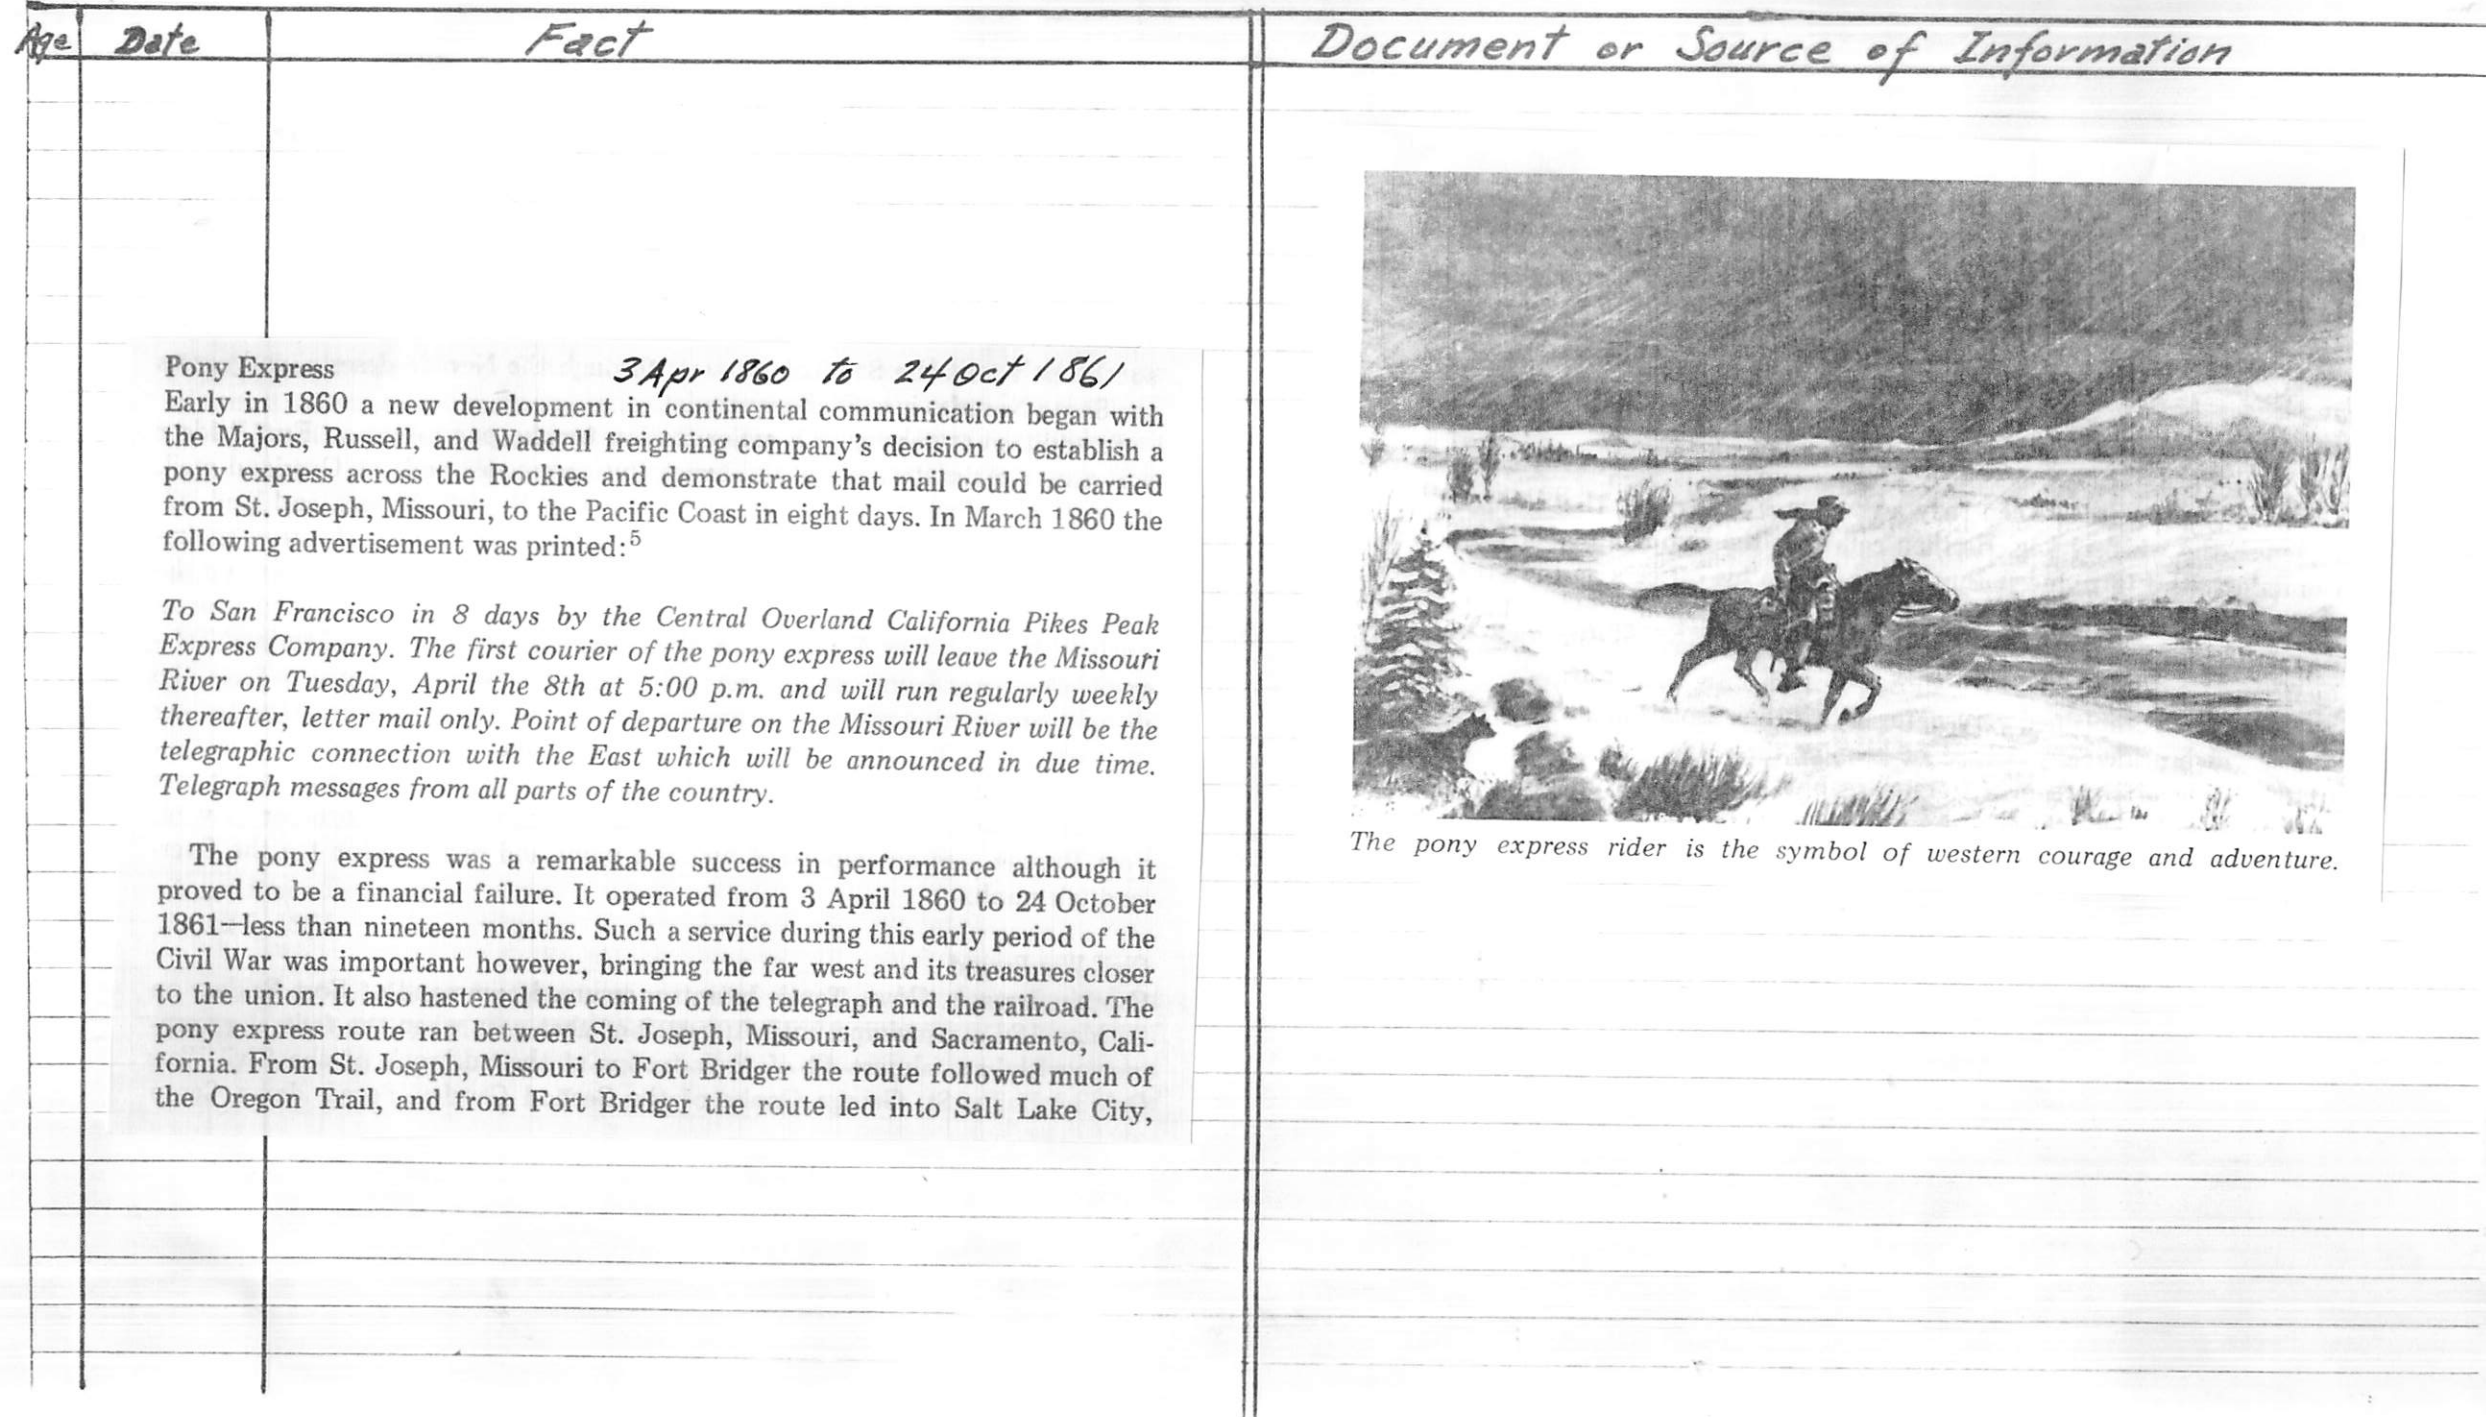 Age Date Fact Document or Source of Information
Pony Express 3 Apr 1860 to 24 Oct 1861
Early in 1860 a new development in continental communication began with
the Majors, Russell, and Waddell freighting company's decision to establish a
pony express across the Rockies and demonstrate that mail could be carried
from St. Joseph, Missouri, to the Pacific Coast in eight days. In March 1860 the
following advertisement was printed:5
To San Francisco in 8 days by the Central Overland California Pikes Peak
Express Company. The first courier of the pony express will leave the Missouri
River on Tuesday, April the 8th at 5:00 p.m. and will run regularly weekly
thereafter, letter mail only. Point of departure on the Missouri River will be the
telegraphic connection with the East which will be announced in due time.
Telegraph messages from all parts of the country.
The pony express was a remarkable success in performance although it
proved to be a financial failure. It operated from 3 April 1860 to 24 October
1861—less than nineteen months. Such a service during this early period of the
Civil War was important however, bringing the far west and its treasures closer
to the union. It also hastened the coming of the telegraph and the railroad. The
pony express route ran between St. Joseph, Missouri, and Sacramento, Cali-
fornia. From St. Joseph, Missouri to Fort Bridger the route followed much of
the Oregon Trail, and from Fort Bridger the route led into Salt Lake City,
The pony express rider is the symbol of western courage and adventure.